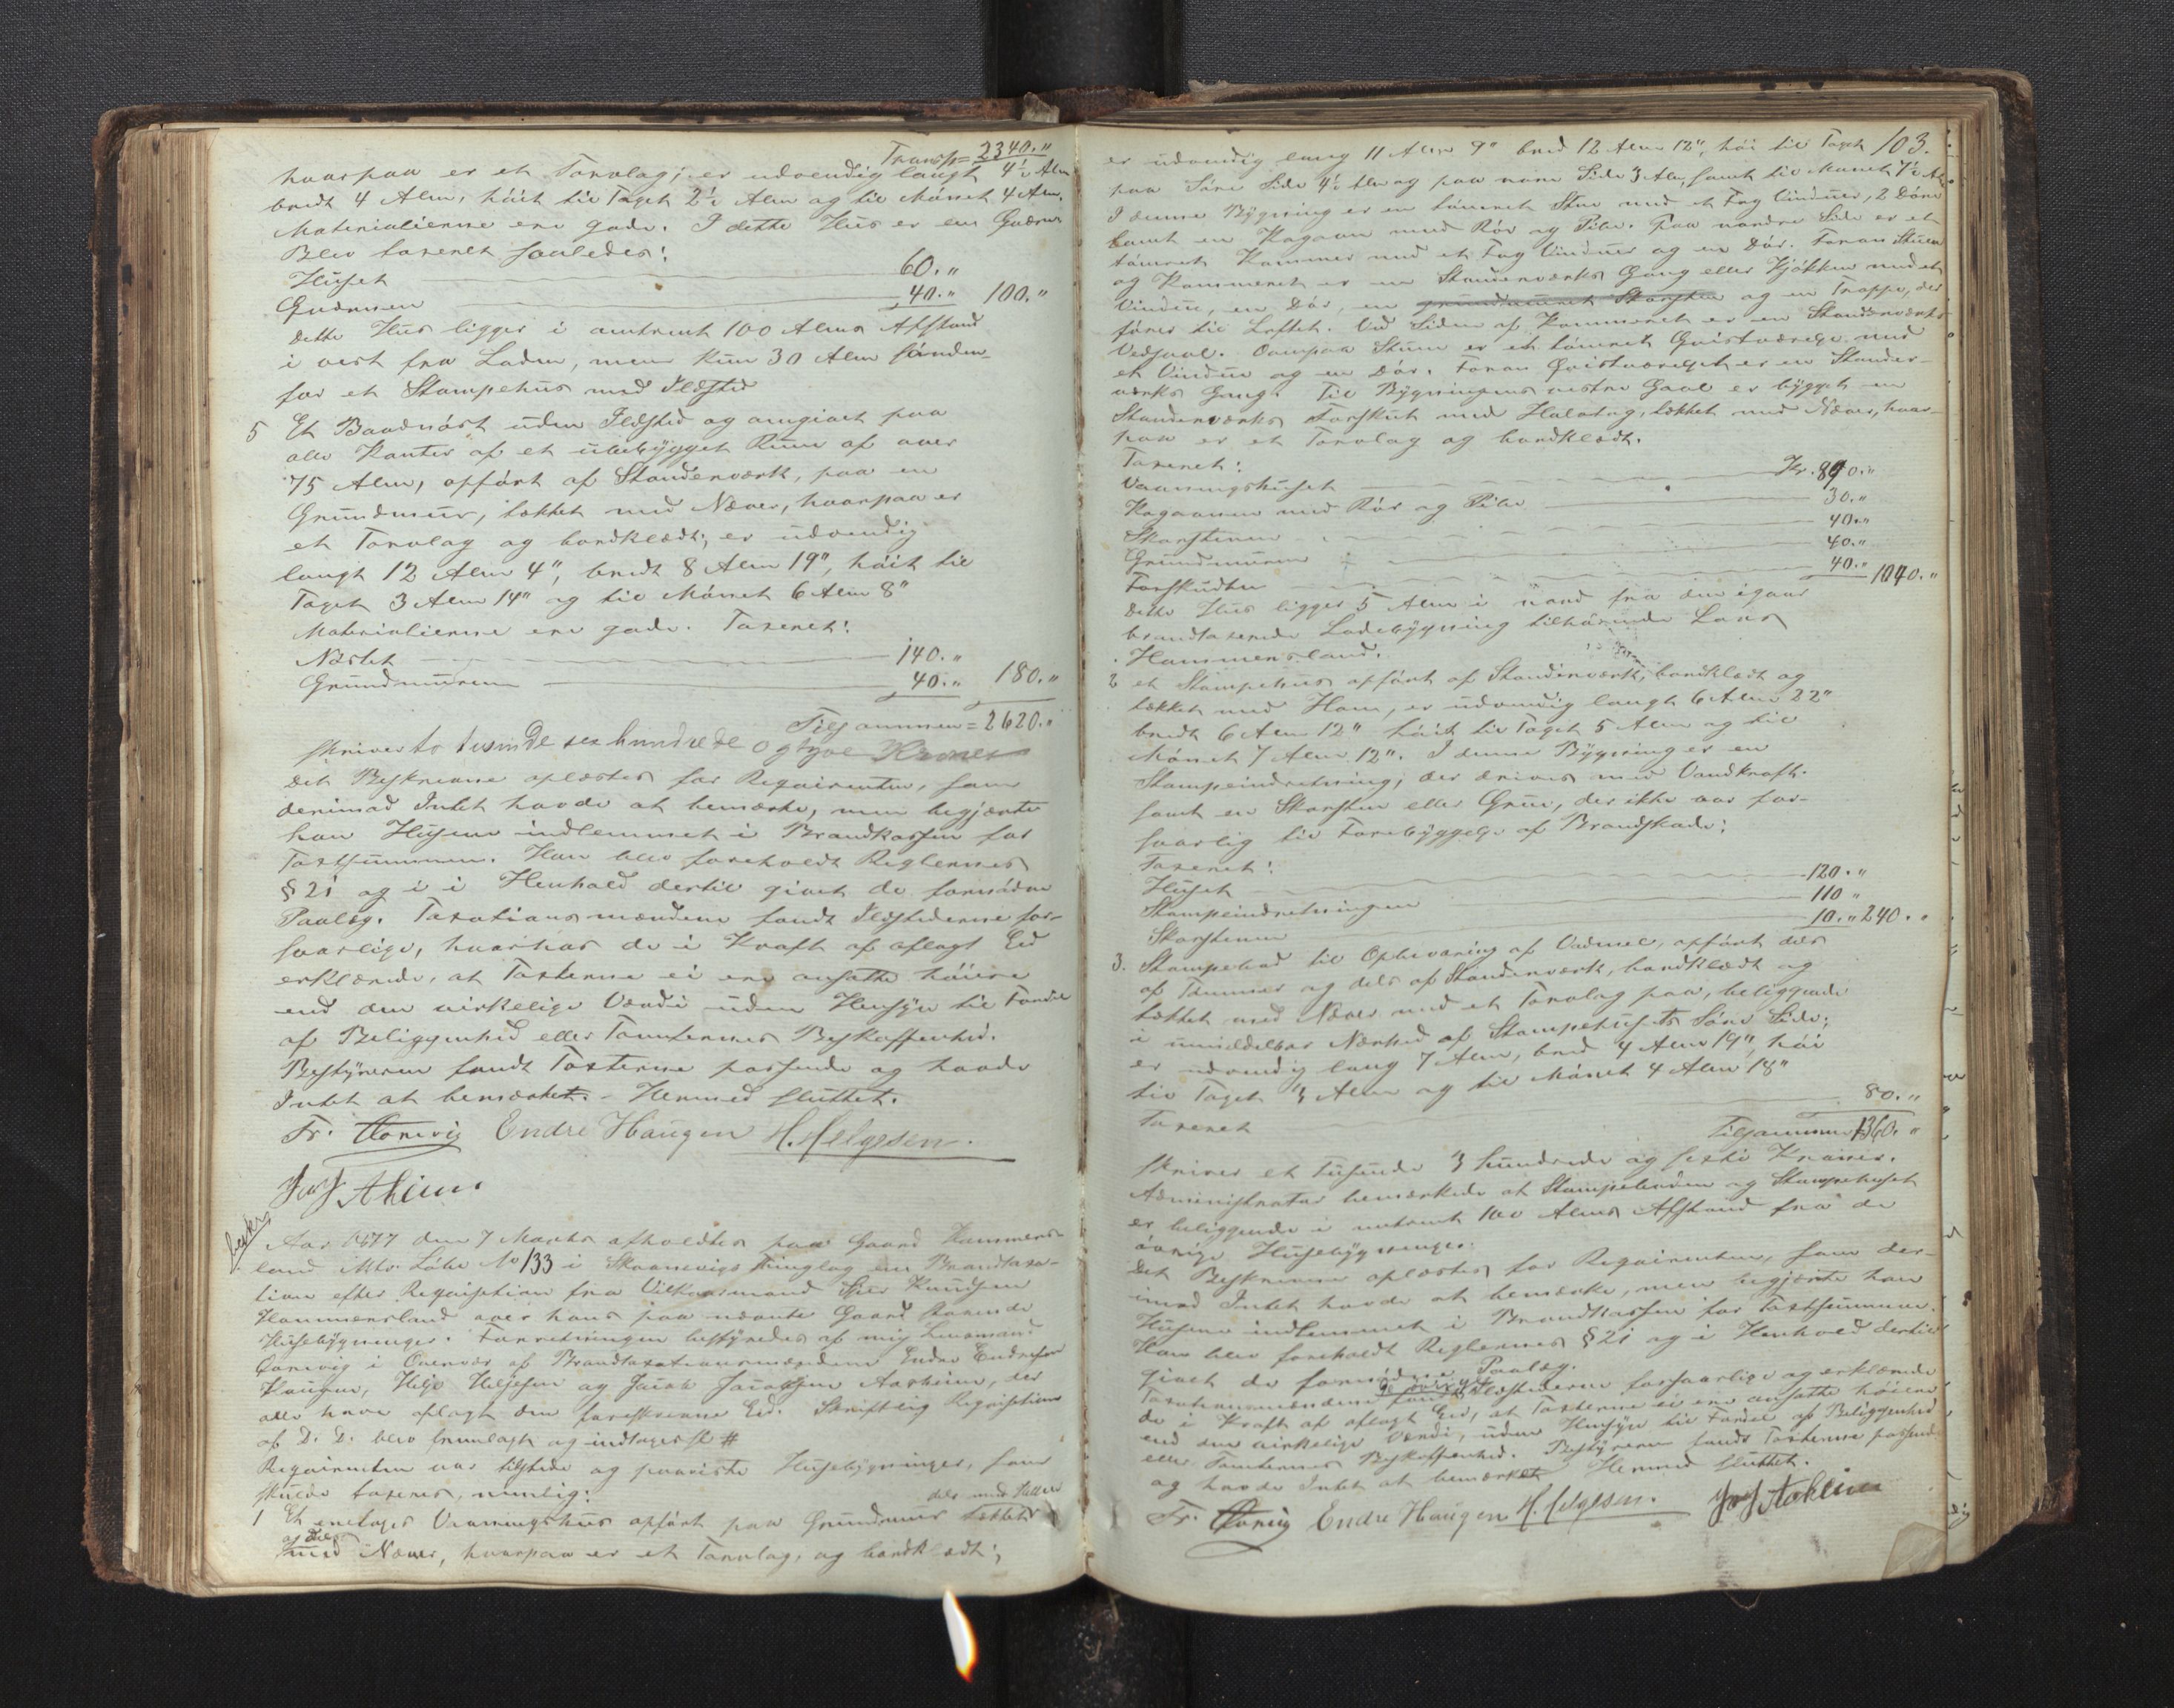 Transp = 2340."
hvorpaa er et Torvlag; er udvendig langt 4½ Alen
bredt 4 Alen, höit til Taget 2½ Alen og til Mönet 4 Alen.
Materialierne ere gode. I dette Huus er en Qværn.
Blev taxeret saaledes:
Huset 60."
Qværnen 40." 100."
Dette Hus ligger i omtrent 100 Alens Afstand
i vest fra Laden, men kun 30 Alen sönden-
for et Stampehus med Ildsted
5 Et Baadnöst uden Ildsted og omgivet paa
alle Kanter af et ubebygget Rum af over
75 Alen, opfört af Standerværk, paa en
Grundmuur, tækket med Næver, hvorpaa er
et Torvlag og bordklædt; er udvendig
langt 12 Alen 4", bredt 8 Alen 19", höit til
Taget 3 Alen 14" og til Mönet 6 Alen 8"
Materialierne ere gode. Taxeret:
Nöstet 140."
Grundmuren 40." 180."
Tilsammen = 2620."
skriver to tusinde sex hundrede og tyve Kroner
Det Beskrevne oplæstes for Reqvirenten, som
derimod Intet havde at bemærke, men begjærte
han Husene indlemmet i Brandkassen for
Taxtsummen. Han blev foreholdt Reglernes
§ 21 og i i Henhold dertil givet de fornödne
Paalæg. Taxationsmændene fandt Ildstederne for-
svarlige, hvorhos de i Kraft af aflagt Eed
erklærede, at Taxterne ei ere ansatte höiere
end den virkelige Værdi uden Hensyn til Fordel
af Beliggenhed eller Tomternes Beskaffenhed.
Bestyreren fandt Taxterne passende og havde
Intet at bemærket. - Hermed sluttet.
Fr. Endre Haugen H. Helgesen.
J. J. Aheim
beskr.
Aar 1877 den 7 Marts afholdtes paa Gaard Hammers-
land Mtr. Löbe No 133 i Skaanevigs Thinglag en Brandtaxa-
tion efter Reqvisition fra Vilkaarsmand Knudsen
Hammersland over hans paa nævnte Gaard staaende
Husebygninger. Forretningen bestyredes af mig Lensmand
i Overvær af Brandtaxationsmændene Endre Endresen
Haugen, Helje Heljesen og Jacob Jacobsen Aarheim, der
alle have aflagt den foreskrevne Eed. Skriftlig Reqvisition
af D. D. blev fremlagt og indtages sl #
Reqvirenten var tilstede og paaviste Husebygninger, som
skulde taxeres, nemlig:
dels med Heller
1 Et enetages Vaaningshus opfört paa Grundmuur tækket
og dels
med Næver, hvorpaa er et Torvlag, og bordklædt;
103.
er udvendig lang 11 Alen 9" bred 12 Alen 12", höi til Taget
paa Söre Side 4½ Alen og paa nore Side 3 Alen, samt til Mönet 7½ Al.
I denne Bygning er en tömret Stue med et Fag Vinduer, 2 Döre
samt en Kogeovn med Rör og Pibe. Paa nordre Side er et
tömret Kammer med et Fag Vinduer og en Dör. Foran Stuen
og Kammeret er en Standerværks Gang eller Kjökken med et
Vindue, en Dör, en grundmuret Skorsten og en Trappe, der
förer til Loftet. Ved Siden af Kammeret er en Standerværks
Vedsval. Ovenpaa Stuen er et tömret Qvistværelse med
et Vindue og en Dör. Foran Qvistværelset er en Stander-
værks Gang. Til Bygningens vestre Gavl er bygget en
Standerværks Forskut med Halvtag, tækket med Næver, hvor-
paa er et Torvlag og bordklædt.
Taxeret:
Vaaningshuset Kr. 890."
Kogeovnen med Rör og Pibe 30."
Skorstenen 40."
Grundmuren 40."
Forskudten 40." 1040."
Dette Hus ligger 5 Alen i nord fra den igaar
brandtaxerede Ladebygning tilhörende Lars
Hammersland.
2 et Stampehus opfört af Standerværk, bordklædt og
tækket med Horn, er udvendig langt 6 Alen 22"
bredt 6 Alen 12" höit til Taget 5 Alen og til
Mönet 7 Alen 12". I denne Bygning er en
Stampeindretning, der drives med Vandkraft.
samt en Skorsten eller Grue, der ikke var for-
svarlig til Forebyggelse af Brandskade:
Taxeret:
Huset 120."
Stampeindretningen 110 "
Skorstenen 10." 240."
3. Stampebod til Opbevaring af Vadmel, opfört dels
af Tömmer og dels af Standerværk, bordklædt og
tækket med Næver med et Torvlag paa, beliggende
i umiddelbar Nærhed af Stampehusets Söre Side;
er udvendig lang 7 Alen, bred 4 Alen 19", höi
til Taget 3 Alen og til Mönet 4 Alen 18"
Taxeret 80."
Tilsammen 1360."
skriver et tusinde 3 hundrede og sexti Kroner.
Administrator bemærkede at Stampeboden og Stampehuset
er beliggende i omtrent 100 Alens Afstand fra de
övrige Husebygninger.
Det Beskrevne oplæstes for Reqvirenten, som der-
imod Intet havde at bemærke, men begjærte han
Husene indlemmet i Brandkassen for Taxtsummen.
Han blev foreholdt Reglernes § 21 og i Henhold dertil
givet de fornödne Paalæg.
de övrige
Taxationsmændene fandt Ildstederne forsvarlige og erklærede
de i Kraft af aflagt Eed, at Taxterne ei ere ansatte höiere
end den virkelige Værdi, uden Hensyn til Fordel af Beliggenhed
eller Tomternes Beskaffenhed. Bestyreren fandt Taxterne passende
og havde Intet at bemærket Hermed sluttet.
Fr. Endre Haugen H. Helgesen. J. J. Aarheim